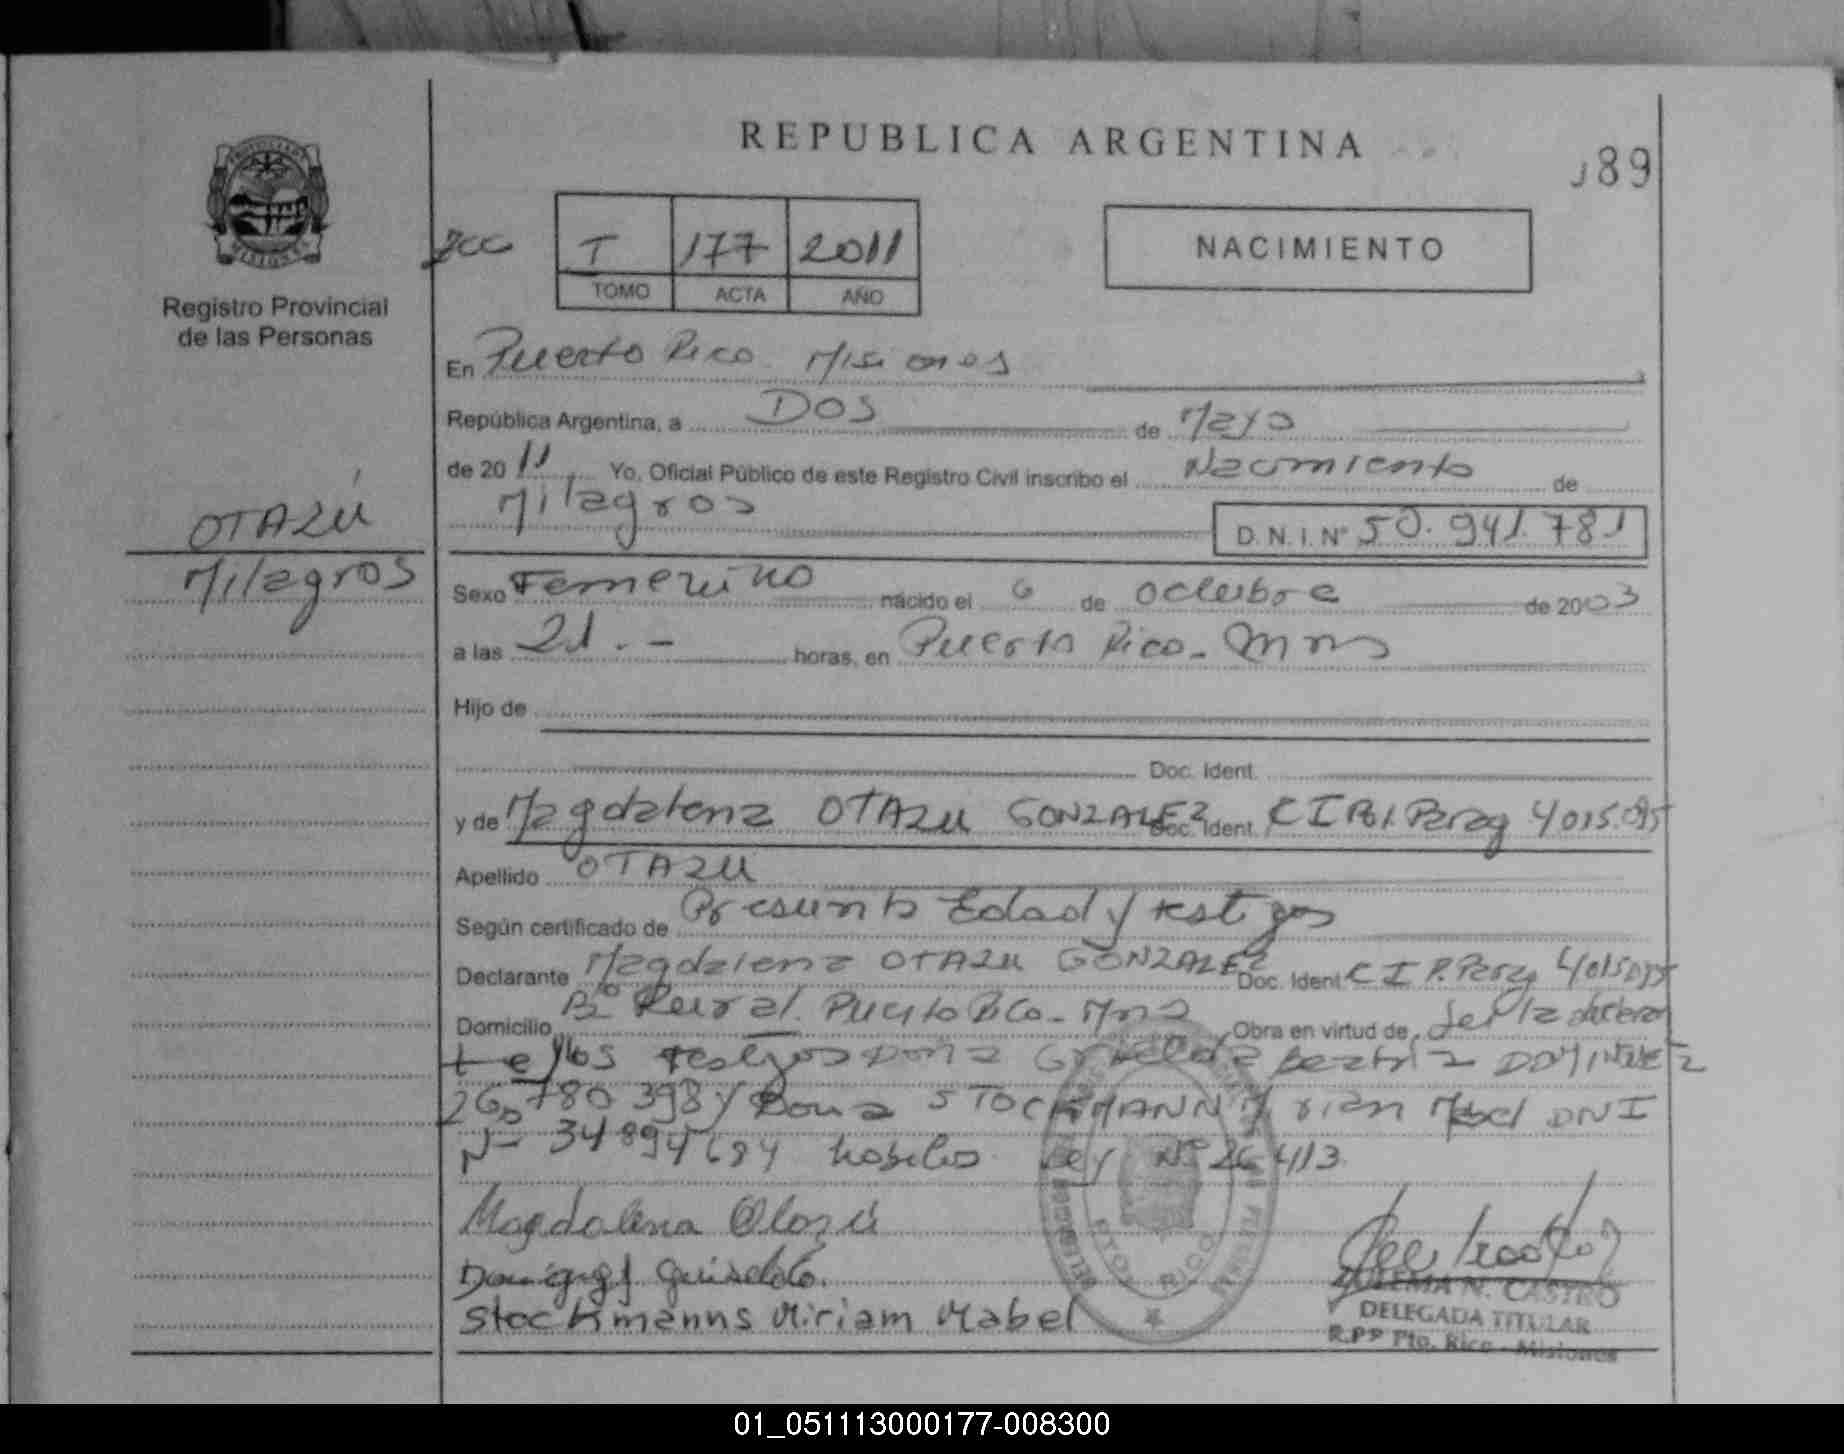 REPUBLICA ARGENTINA
189
PROVINCIA DE MISIONES
Registro Provincial
de las Personas
T 177 2011
TOMO ACTA AÑO
NACIMIENTO
En Puerto Rico Misiones
República Argentina, a DOS de Mayo
de 2011 Yo, Oficial Público de este Registro Civil inscribo el Nacimiento de
Milagros
D.N.I. Nº 50.941.781
OTAZÚ
Milagros
Sexo Femenino nacido el 6 de Octubre de 2003
a las 21.- horas, en Puerto Rico - Mnes
Hijo de
Doc. Ident.
y de Magdalena OTAZU GONZALEZ Doc. Ident. C I Pol. Parag 4015.095
Apellido OTAZU
Según certificado de Presunta Edad y testigos
Declarante Magdalena OTAZU GONZALEZ Doc. Ident C I P. Parag 4015095
Domicilio Bº Rural. Puerto Rico - Mns Obra en virtud de ser la declaran
te y los testigos Doña Griselda Beatriz DOMINGUEZ
26.780 398 y Doña STOCKMANN Miriam Mabel DNI
Nº 34 894 684 habiles Ley Nº 26 413
Magdalena Otazú
Griselda
Stockmanns Miriam Mabel
PTO. RICO
ZULEMA N. CASTRO
DELEGADA TITULAR
R.P.P Pto. Rico - Misiones
01_051113000177-008300